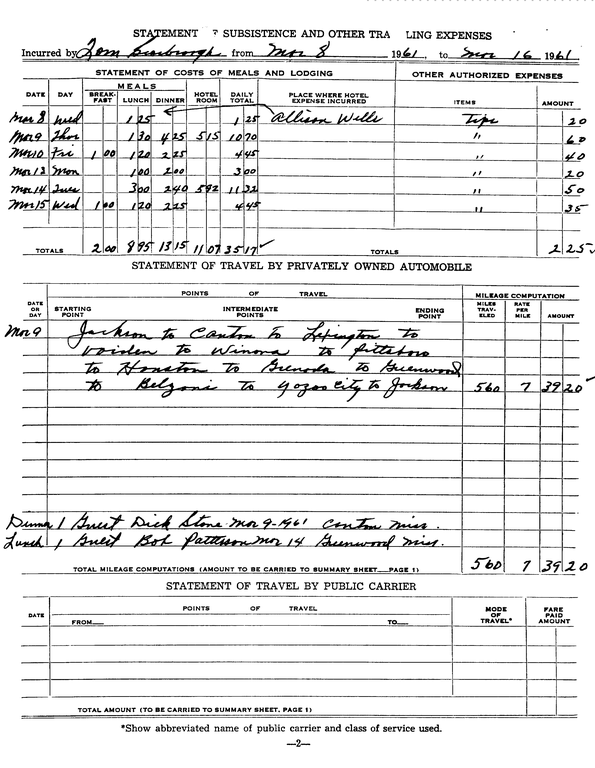 STATEMENT F SUBSISTENCE AND OTHER TRA LING EXPENSES
Incurred by Tom Scarbrough from Mar 8 1961, to Mar 16 1961
STATEMENT OF COSTS OF MEALS AND LODGING OTHER AUTHORIZED EXPENSES
MEALS
DATE DAY BREAK-FAST LUNCH DINNER HOTEL ROOM DAILY TOTAL PLACE WHERE HOTEL EXPENSE INCURRED ITEMS AMOUNT
Mar 8 Wed 1 25 1 25 Allison Wells tips 20
Mar 9 Thur 1 30 4 25 5 15 10 70 " 60
Mar 10 Fri 1 00 1 20 2 25 4 45 " 40
Mar 13 Mon 1 00 2 00 3 00 " 20
Mar 14 Tues 3 00 2 40 5 92 11 32 " 50
Mar 15 Wed 1 00 1 20 2 25 4 45 " 35
TOTALS 2 00 8 95 13 15 11 07 35 17 ✓ TOTALS 2 25 ✓
STATEMENT OF TRAVEL BY PRIVATELY OWNED AUTOMOBILE
POINTS OF TRAVEL MILEAGE COMPUTATION
DATE OR DAY STARTING POINT INTERMEDIATE POINTS ENDING POINT MILES TRAV-ELED RATE PER MILE AMOUNT
Mar 9 Jackson to Canton to Lexington to
Vaiden to Winona to Pittsboro
to Houston to Grenada to Greenwood
to Belzoni to Yazoo City to Jackson 560 7 39 20 ✓
Dinner 1 Guest Dick Stone Mar 9-1961 Canton Miss.
Lunch 1 Guest Bob Patterson Mar 14 Greenwood Miss.
TOTAL MILEAGE COMPUTATIONS (AMOUNT TO BE CARRIED TO SUMMARY SHEET PAGE 1) 560 7 39 20
STATEMENT OF TRAVEL BY PUBLIC CARRIER
DATE POINTS OF TRAVEL MODE OF TRAVEL* FARE PAID AMOUNT
FROM TO
TOTAL AMOUNT (TO BE CARRIED TO SUMMARY SHEET, PAGE 1)
*Show abbreviated name of public carrier and class of service used.
—2—